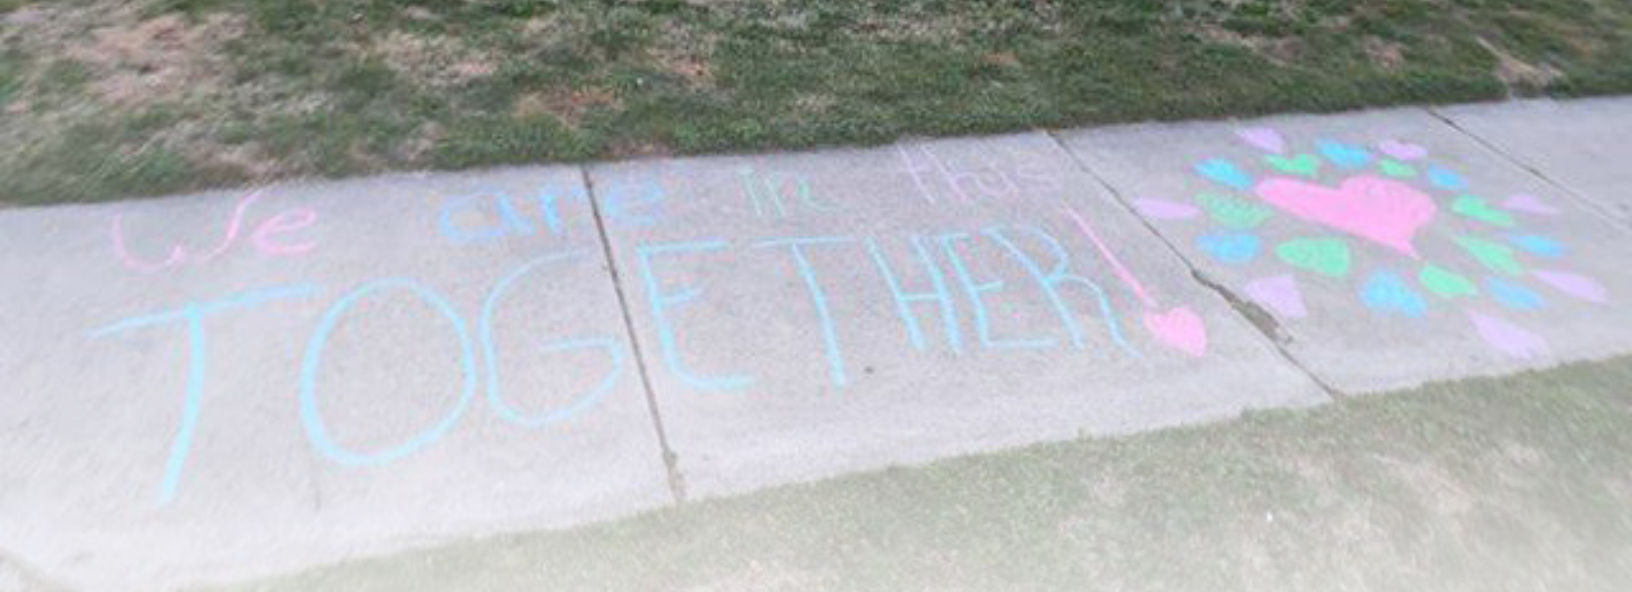 We are in this
TOGETHER!